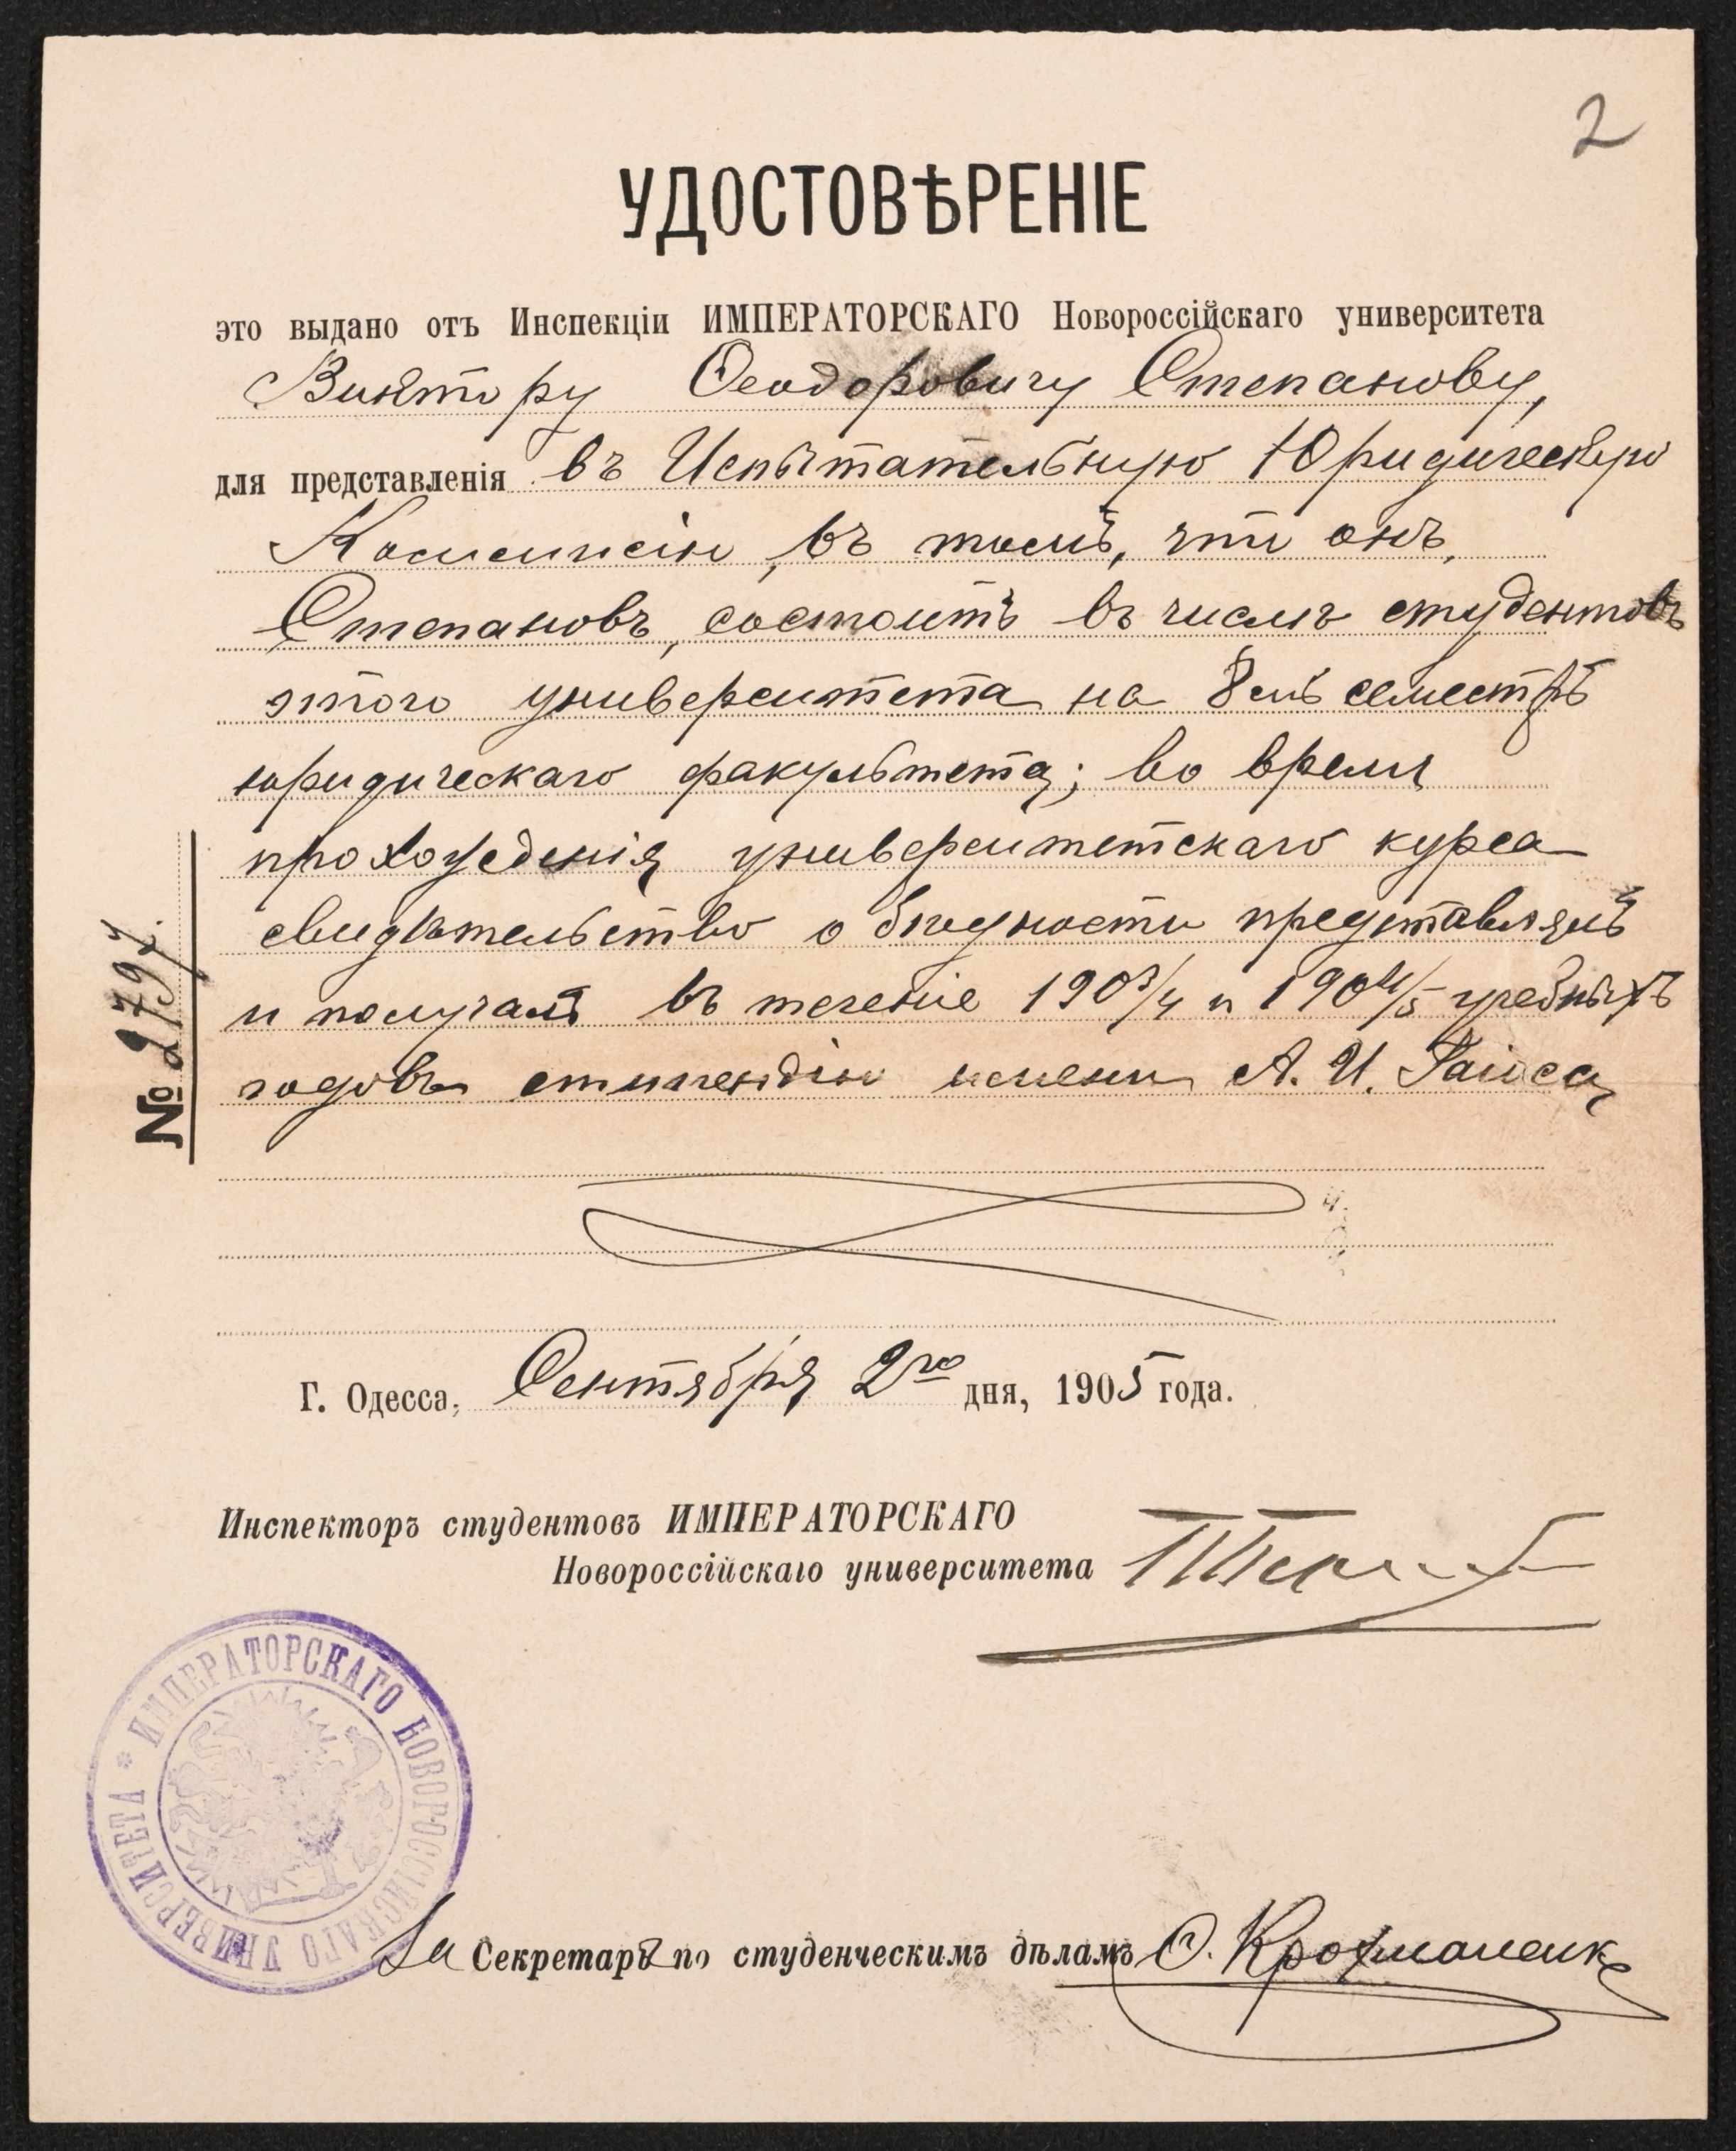 2
УДОСТОВѢРЕНІЕ
это выдано отъ Инспекціи ИМПЕРАТОРСКАГО Новороссійскаго университета
Виктору Ѳеодоровичу Степанову,
для представленія въ Испытательную Юридическую
Коммисію, въ томъ, что онъ,
Степановъ, состоитъ въ числѣ студентовъ
этого университета на 8 мъ семестрѣ
юридическаго факультета; во время
прохожденія университетскаго курса
свидѣтельство о бѣдности представлялъ
и получалъ въ теченіе 1903/4 и 1904/5 учебныхъ
годовъ стипендію имени А. И.
№ 2797.
Г. Одесса, Сентября 2го дня, 1905 года.
Инспекторъ студентовъ ИМПЕРАТОРСКАГО
Новороссійскаго университета
* ИМПЕРАТОРСКАГО НОВОРОССІЙСКАГО УНИВЕРСИТЕТА
За Секретаря по студенческимъ дѣламъ